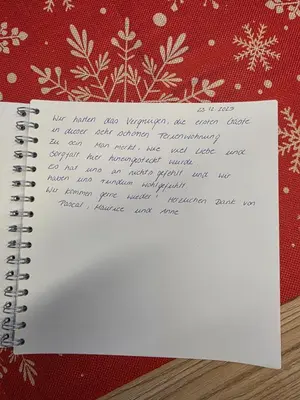 23.12.2023
Wir hatten das Vergnügen, die ersten Gäste
in dieser sehr schönen Ferienwohnung
zu sein. Man merkt, wie viel Liebe und
Sorgfalt hier hineingesteckt wurde.
Es hat uns an nichts gefehlt und wir
haben uns rundum wohlgefühlt.
Wir kommen gerne wieder! Herzlichen Dank von
Pascal, Maurice und Anne